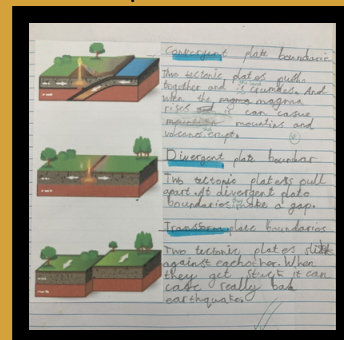 Convergent plate boundarie
Two tectonic plates push
together and it crumbles. And
when the magma
rises it can casue
mountins and
volcanos erupt.
Divergent plate boundar
Two tectonic plates pull
apart. At divergent plate
boundaries make a gap.
Transform plate boundaries
Two tectonic plates slide
against eachother. When
they get stuck it can
case really bad
earthquakes